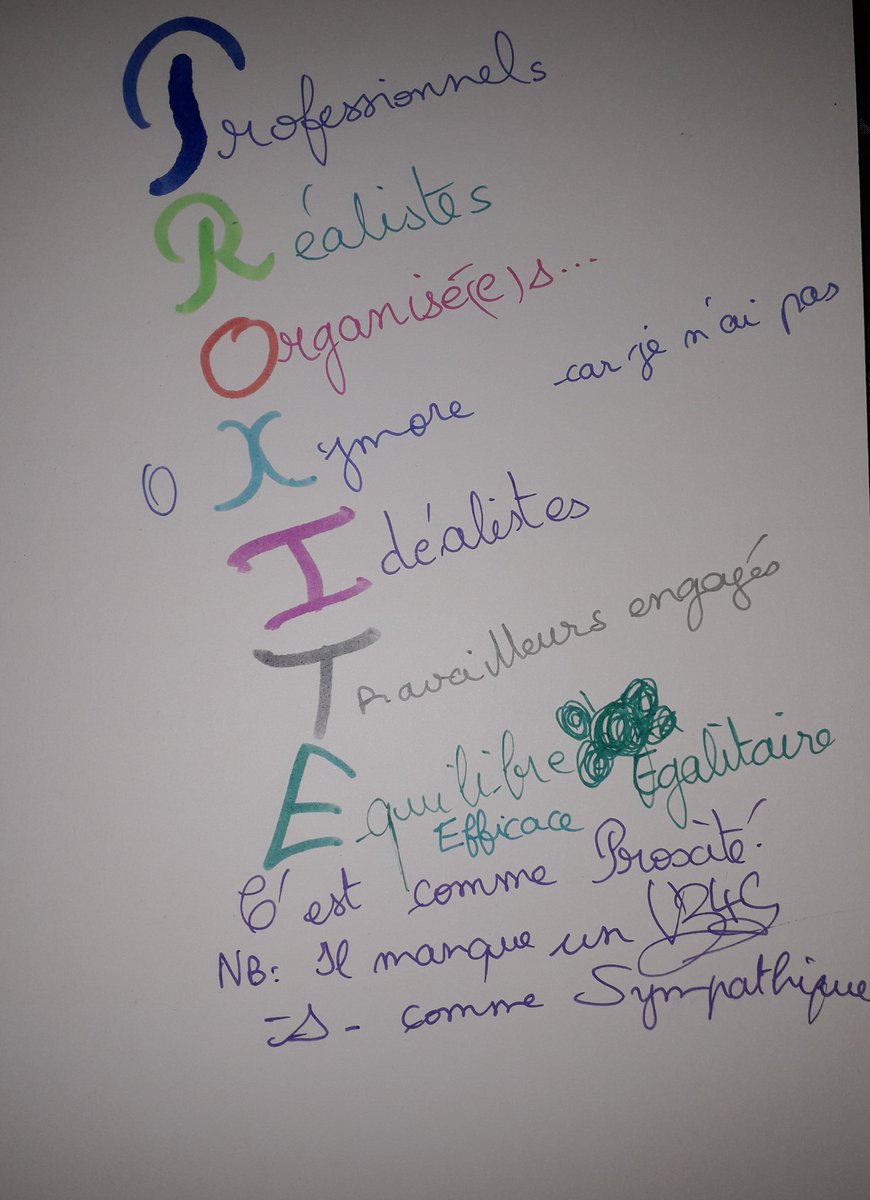 Professionnels
Réalistes
Organisé(e)s...
O Xymore car je n'ai pas
Idéalistes
Travailleurs engagés
Equilibre Egalitaire
Efficace
C'est comme Proxité!
NB: Il manque un
-s- comme Sympathique